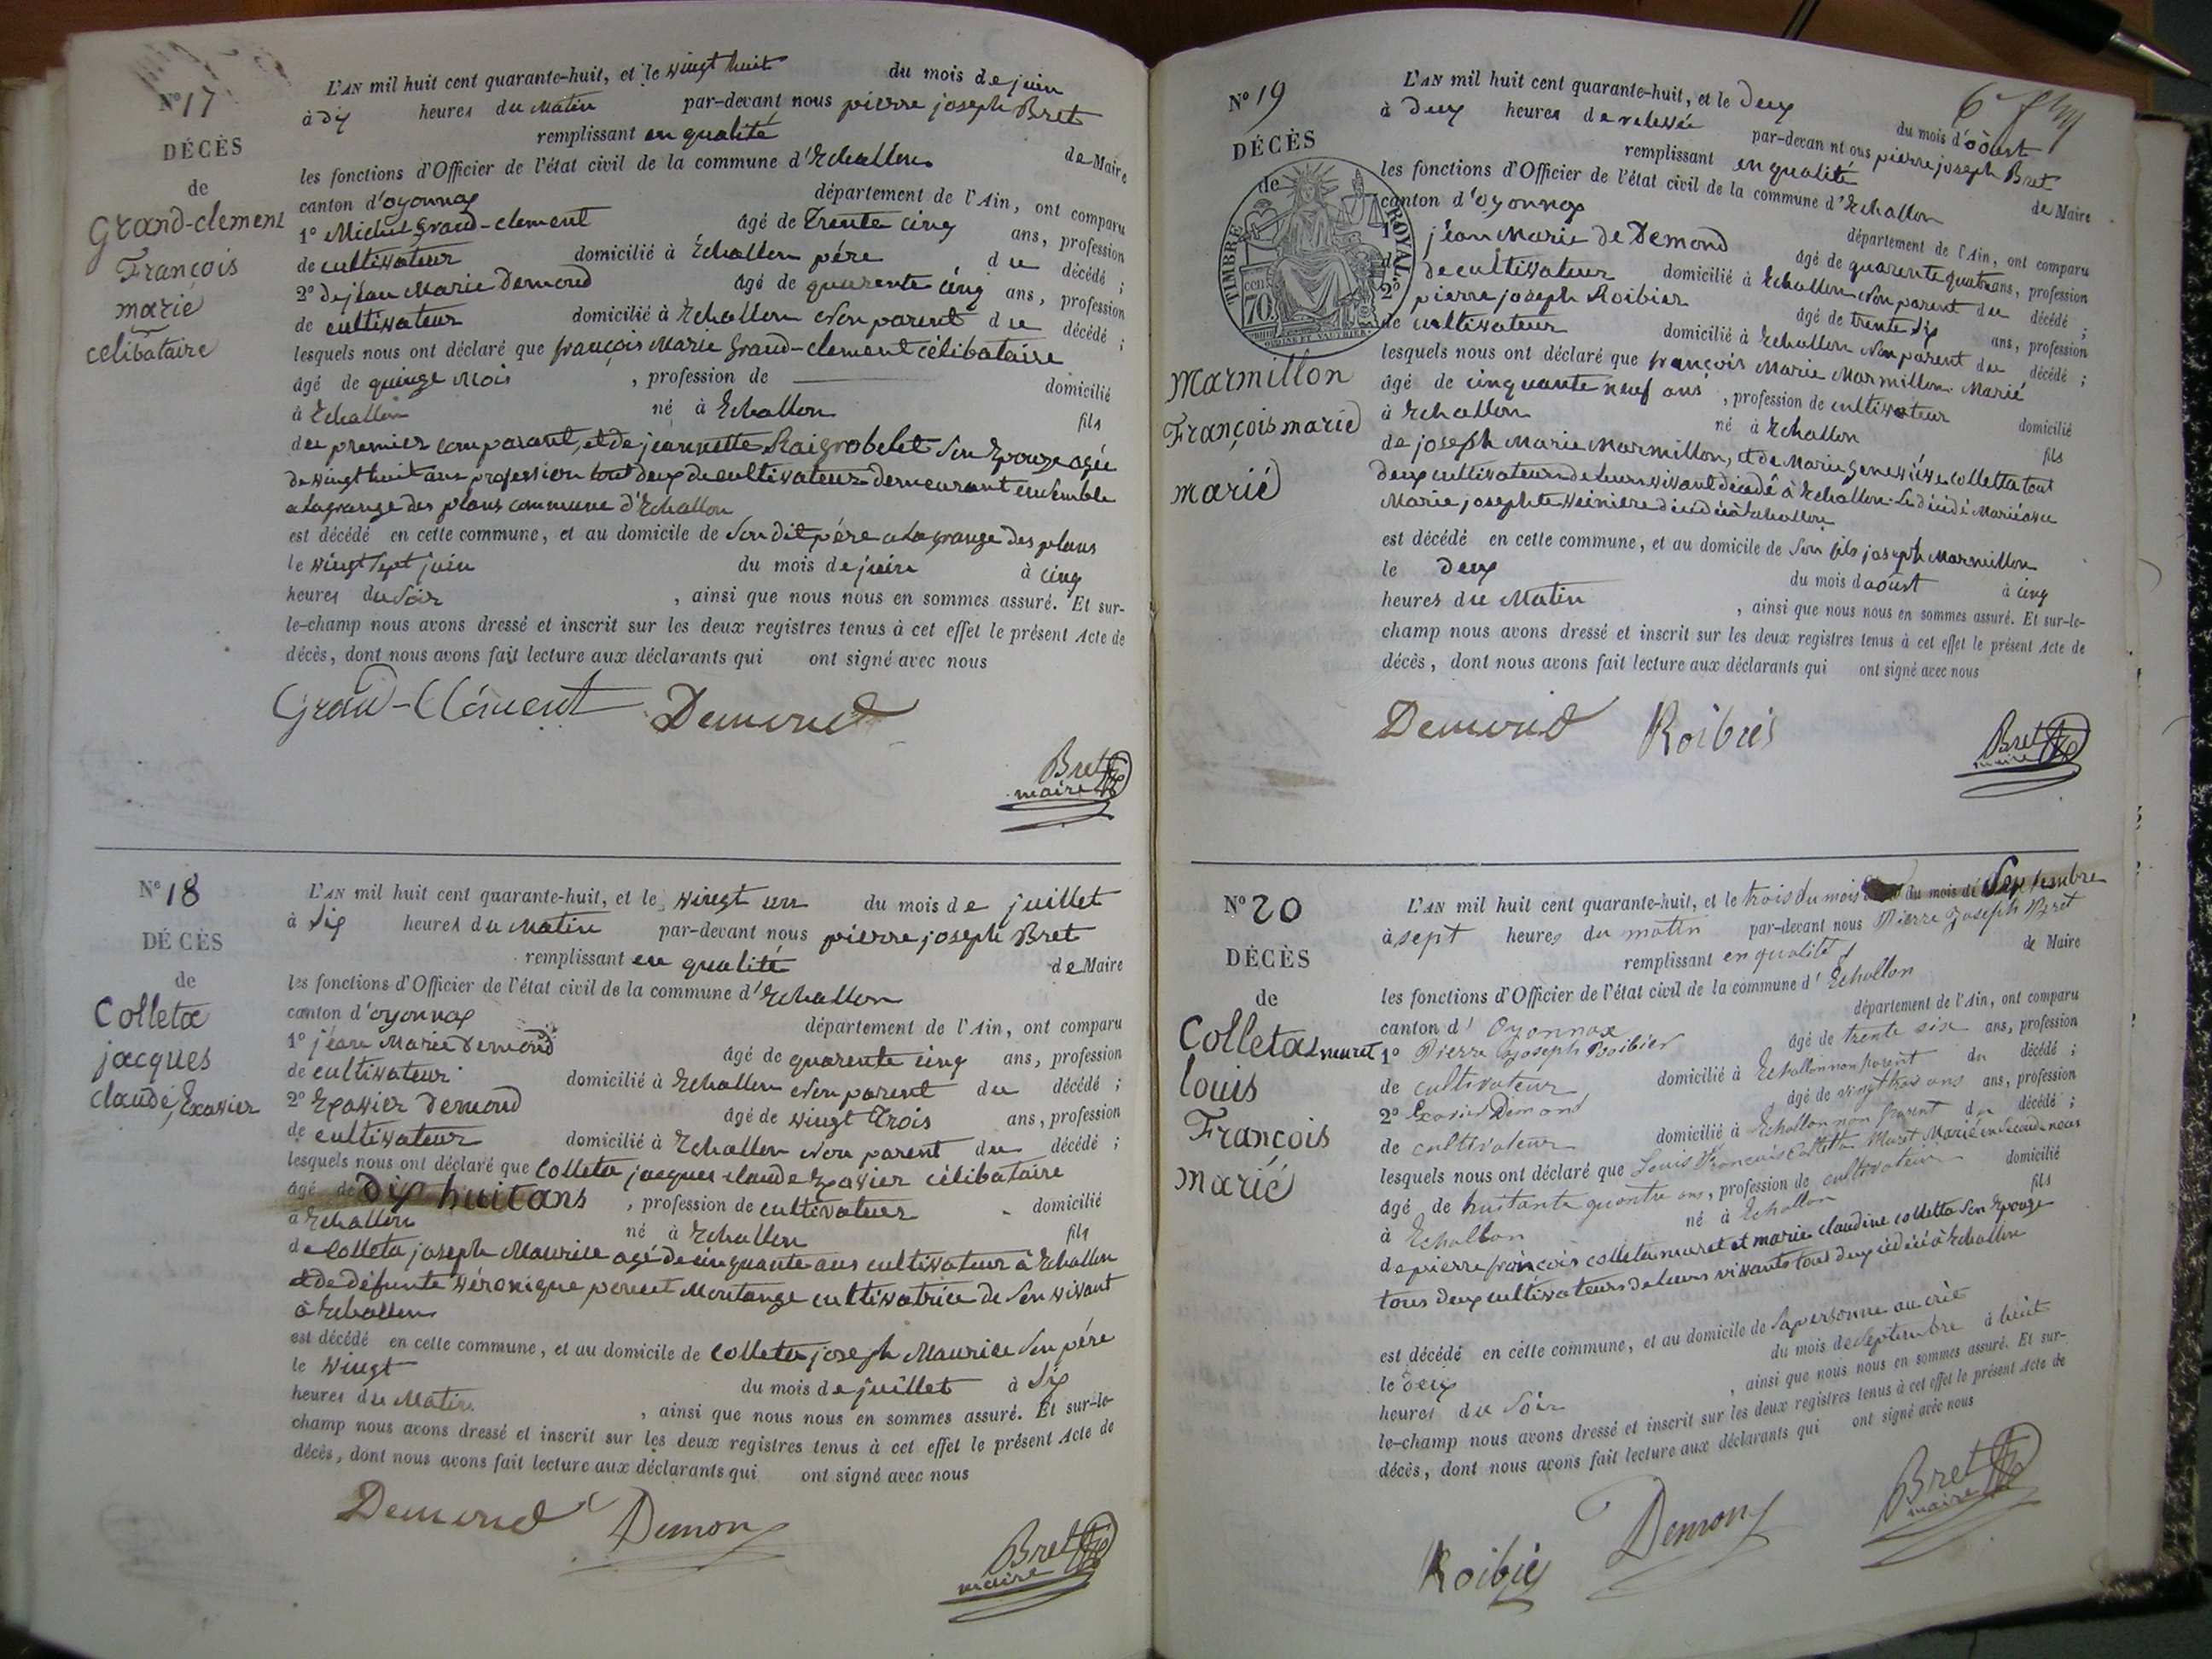 N° 17
DÉCÈS
de
Grand-clement
François
marie
celibataire
L'AN mil huit cent quarante-huit, et le vingt huit du mois de juin
à dix heures du Matin par-devant nous pierre joseph Bret
remplissant en qualité de Maire
les fonctions d'Officier de l'état civil de la commune d'Echallon
canton d'oyonnax département de l'Ain, ont comparu
1° Michel Grand-clement âgé de Trente cinq ans, profession
de cultivateur domicilié à Echallon père du décédé ;
2° de jean Marie Demond âgé de quarente cinq ans, profession
de cultivateur domicilié à Echallon Non parent du décédé ;
lesquels nous ont déclaré que françois Marie Grand-clement célibataire
âgé de quinze Mois , profession de domicilié
à Echallon né à Echallon fils
du premier comparant, et de jeannette Raigrobelet Son Epouze agée
de vingt huit ans profession tout deux de cultivateur demeurant enSemble
a Lagrange des plans commune d'Echallon
est décédé en cette commune, et au domicile de Son dit père a La grange des plans
le vingt Sept juin du mois de juin à cinq
heures du Soir , ainsi que nous nous en sommes assuré. Et sur-
le-champ nous avons dressé et inscrit sur les deux registres tenus à cet effet le présent Acte de
décès, dont nous avons fait lecture aux déclarants qui ont signé avec nous
Grand-Clément Demond
Bret
maire
N° 18
DÉCÈS
de
Colleta
jacques
claude, Exavier
L'AN mil huit cent quarante-huit, et le vingt un du mois de juillet
à Six heures du Matin par-devant nous pierre joseph Bret
remplissant en qualité de Maire
les fonctions d'Officier de l'état civil de la commune d'Echallon
canton d'oyonnax département de l'Ain, ont comparu
1° jean Marie Demond âgé de quarente cinq ans, profession
de cultivateur domicilié à Echallon Non parent du décédé ;
2° Exavier Demond âgé de vingt Trois ans, profession
de cultivateur domicilié à Echallon Non parent du décédé ;
lesquels nous ont déclaré que Colleta jacques claude Exavier célibataire
âgé de dix huit ans , profession de cultivateur domicilié
à Echallon né à Echallon fils
de Colleta joseph Maurice agé de cinquante ans cultivateur à Echallon
et de défunte Véronique Montange cultivatrice de Son vivant
à Echallon
est décédé en cette commune, et au domicile de Colleta joseph Maurice Son père
le vingt du mois de juillet à Six
heures du Matin , ainsi que nous nous en sommes assuré. Et sur-le-
champ nous avons dressé et inscrit sur les deux registres tenus à cet effet le présent Acte de
décès, dont nous avons fait lecture aux déclarants qui ont signé avec nous
Demond Demon
Bret
maire
6
N° 19
DÉCÈS
de
TIMBRE ROYAL
70 cen
Marmillon
François marie
marié
L'AN mil huit cent quarante-huit, et le Deux du mois d'août
à Deux heures de relevée par-devan nt ous pierre joseph Bret
remplissant en qualité de Maire
les fonctions d'Officier de l'état civil de la commune d'Echallon
canton d'oyonnax département de l'Ain, ont comparu
1° jean Marie de Demond âgé de quarente quatre ans, profession
de cultivateur domicilié à Echallon Non parent du décédé ;
2° pierre joseph Roibier âgé de trente Six ans, profession
de cultivateur domicilié à Echallon Non parent du décédé ;
lesquels nous ont déclaré que françois Marie Marmillon Marié
âgé de cinquante neuf ans , profession de cultivateur domicilié
à Echallon né à Echallon fils
de joseph Marie Marmillon, et de Marie genevieve colletta tout
deux cultivateur de Leurs vivant décédé à Echallon. Le décédé Marié avec
Marie josephte à Echallon
est décédé en cette commune, et au domicile de Son fils joseph Marmillon
le Deux du mois d'août à cinq
heures du Matin , ainsi que nous nous en sommes assuré. Et sur-le-
champ nous avons dressé et inscrit sur les deux registres tenus à cet effet le présent Acte de
décès, dont nous avons fait lecture aux déclarants qui ont signé avec nous
Demond Roibier
Bret
maire
N° 20
DÉCÈS
de
Colleta muret
louis
François
marié
L'AN mil huit cent quarante-huit, et le trois du mois du mois de Septembre
à sept heures du matin par-devant nous Pierre Joseph Bret
remplissant en qualité de Maire
les fonctions d'Officier de l'état civil de la commune d'Echallon
canton d'Oyonnax département de l'Ain, ont comparu
1° Pierre Joseph Roibier âgé de trente six ans, profession
de cultivateur domicilié à Echallon non parent du décédé ;
2° Exavier Demond âgé de vingt trois ans ans, profession
de cultivateur domicilié à Echallon non parent du décédé ;
lesquels nous ont déclaré que Louis François Colletta Muret Marié en Seconde
âgé de huitante quantre ans, profession de cultivateur domicilié
à Echallon né à Echallon fils
de pierre françois colleta muret et marie claudine colletta Son Epouze
tous deux cultivateurs de leurs vivants tous deux décédé à Echallon
est décédé en cette commune, et au domicile de Sa personne au crèt
le Deux du mois de Septembre à huit
heures du Soir , ainsi que nous nous en sommes assuré. Et sur-
le-champ nous avons dressé et inscrit sur les deux registres tenus à cet effet le présent Acte de
décès, dont nous avons fait lecture aux déclarants qui ont signé avec nous
Roibier Demon
Bret
maire